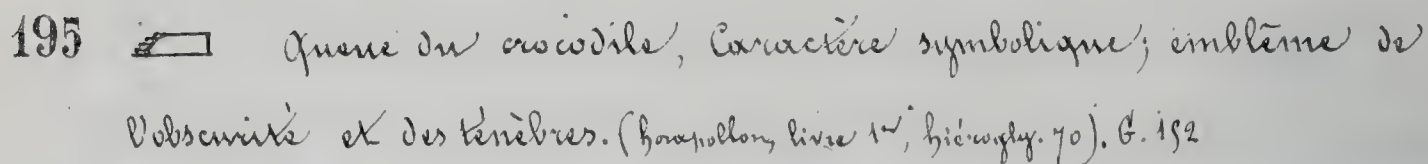 195 Queue du crocodile, Caractère symbolique; emblême de
l'obscurité et des ténèbres. (horapollon, livre 1er, hiérogly. 70). G. 192